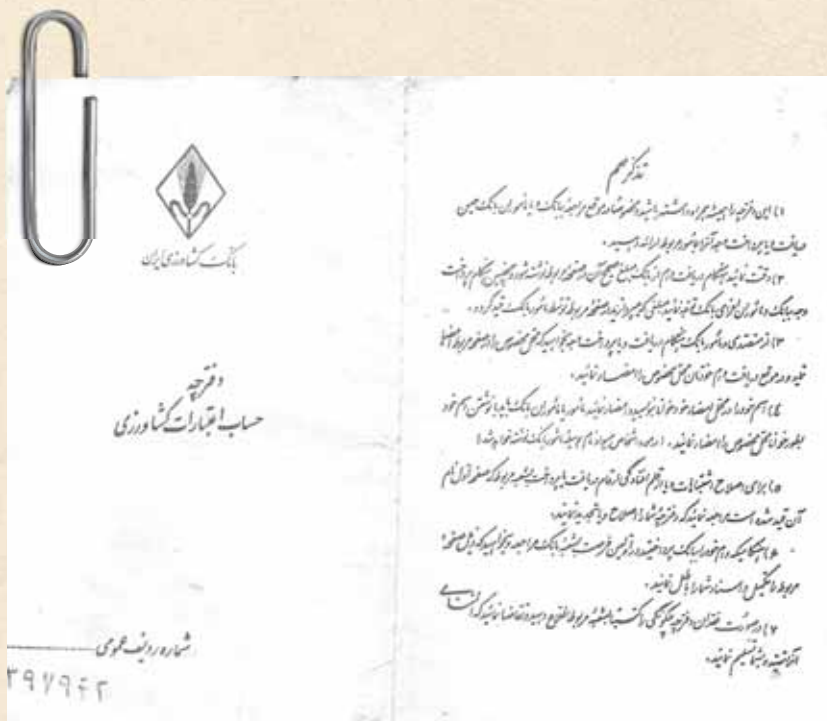 بانک کشاورزی ایران
دفترچه
حساب اعتبارات کشاورزی
شماره ردیف عمومی
تذکر مهم
۱) این دفترچه را همیشه همراه داشته باشید و در موقع مراجعه ببانک و یا مأموران بانک حین
دریافت یا پرداخت وجه آنرا بمأمور مربوط ارائه دهید.
۲) دقت نمائید هنگام دریافت وام از بانک مبلغ صحیح آن در صفحه مربوط نوشته شود و همچنین هنگام پرداخت
وجه ببانک و مأموران بانک توجه نمائید مبلغی که میپردازید در صفحه مربوط توسط مأمور بانک قید گردد.
۳) از متصدی و مأمور بانک هنگام دریافت و یا پرداخت وجه بخواهید که محل مخصوص را در صفحه مربوط امضا
نماید و در موقع دریافت وام خودتان محل مخصوص را امضاء نمائید.
۴) اسم خود را در محل امضاء خود خوانا بنویسید و امضاء نمائید مأمور یا مأموران بانک باید با نوشتن اسم خود
بطور خوانا محل مخصوص را امضاء نمایند.
۵) برای اصلاح اشتباهات و یا از قلم افتادگی ارقام دریافت یا پرداخت بشعبه مربوط که در صفحه اول نام
آن قید شده است مراجعه نمائید که دفترچه شما را اصلاح و یا تجدید نمایند.
۶) هنگامیکه وام خود را ببانک پرداختید در اولین فرصت بشعبه بانک مراجعه و بخواهید که ذیل صفحه
مربوط را تکمیل و اسناد شما را باطل نمایند.
۷) در صورت فقدان دفترچه چگونگی را کتباً بشعبه مربوط اطلاع دهید و تقاضا نمائید که المثنی
آنرا تهیه و بشما تسلیم نمایند.